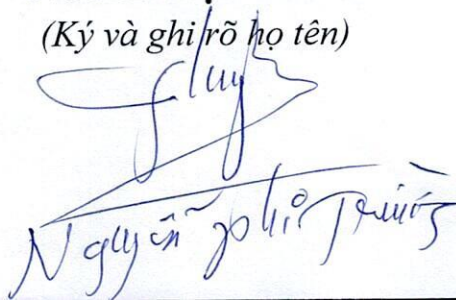 (Ký và ghi rõ họ tên)
Nguyễn Phi Trường